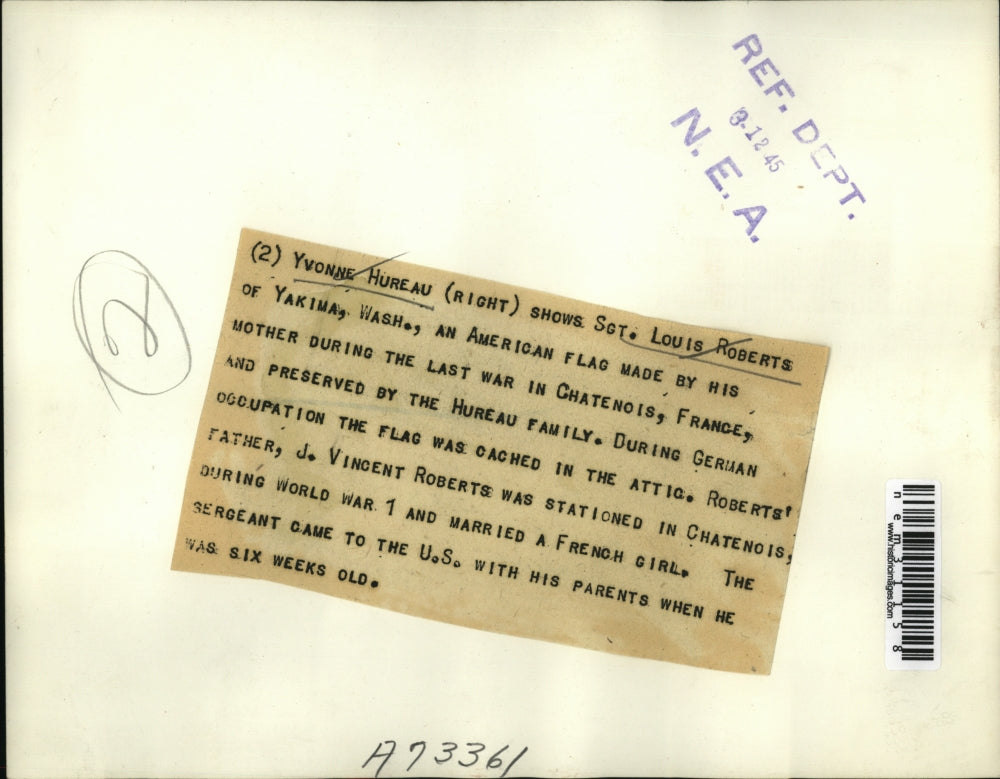 REF. DEPT.
3-12 45
N. E. A.
(2) YVONNE HUREAU (RIGHT) SHOWS SGT. LOUIS ROBERTS
OF YAKIMA, WASH., AN AMERICAN FLAG MADE BY HIS
MOTHER DURING THE LAST WAR IN CHATENOIS, FRANCE,
AND PRESERVED BY THE HUREAU FAMILY. DURING GERMAN
OCCUPATION THE FLAG WAS CACHED IN THE ATTIC. ROBERTS'
FATHER, J. VINCENT ROBERTS WAS STATIONED IN CHATENOIS,
DURING WORLD WAR 1 AND MARRIED A FRENCH GIRL. THE
SERGEANT CAME TO THE U.S. WITH HIS PARENTS WHEN HE
WAS SIX WEEKS OLD.
2
nem31158
www.historicimages.com
A73361